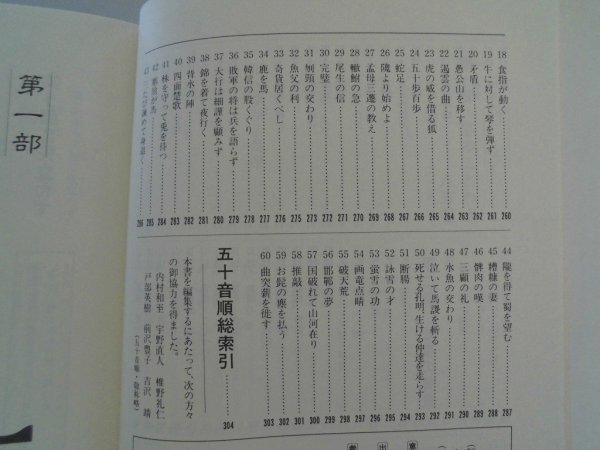 18 食指が動く 260
19 牛に対して琴を弾ず 261
20 矛盾 262
21 愚公山を移す 263
22 遏雲の曲 264
23 虎の威を借る狐 265
24 五十歩百歩 266
25 蛇足 267
26 隗より始めよ 268
27 孟母三遷の教え 269
28 轍鮒の急 270
29 尾生の信 271
30 完璧 272
31 刎頸の交わり 273
32 漁父の利 274
33 奇貨居くべし 275
34 鹿を馬 277
35 韓信の股くぐり 278
36 敗軍の将は兵を語らず 279
37 大行は細謹を顧みず 280
38 錦を着て夜行く 281
39 背水の陣 282
40 四面楚歌 283
41 株を守って兎を待つ 284
42 塞翁が馬 285
43 286
44 隴を得て蜀を望む 287
45 糟糠の妻 288
46 髀肉の嘆 289
47 三顧の礼 290
48 水魚の交わり 291
49 泣いて馬謖を斬る 292
50 死せる孔明、生ける仲達を走らす 293
51 断腸 294
52 詠雪の才 295
53 蛍雪の功 296
54 画竜点睛 297
55 破天荒 298
56 邯鄲の夢 299
57 国破れて山河在り 300
58 推敲 301
59 お髭の塵を払う 302
60 曲突薪を徙す 303
五十音順総索引 304
本書を編集するにあたって、次の方々
の御協力を得ました。
内村和至 宇野直人 椎野礼仁
戸部英樹 前沢豊子 吉沢 靖
(五十音順・敬称略)
第一部